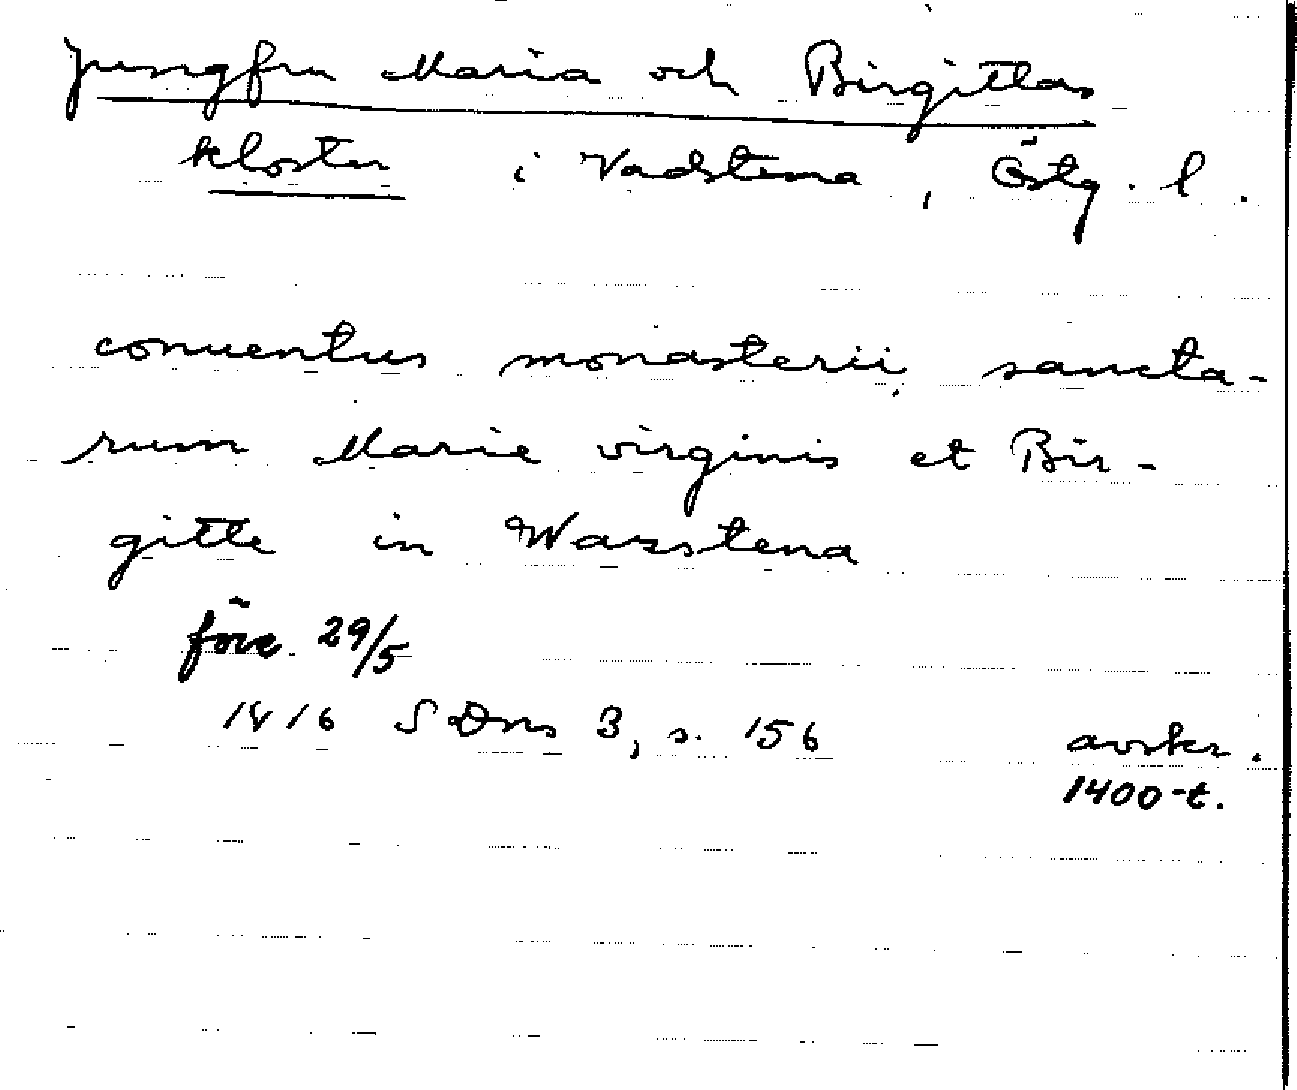 Jungfru Maria och Birgittas
kloster i Vadstena, Östg. l.
conuentus monasterii sancta-
rum Marie virginis et Bir-
gitte in Wazstena
före. 29/5
1416 SDns 3, s. 156 avskr.
1400-t.